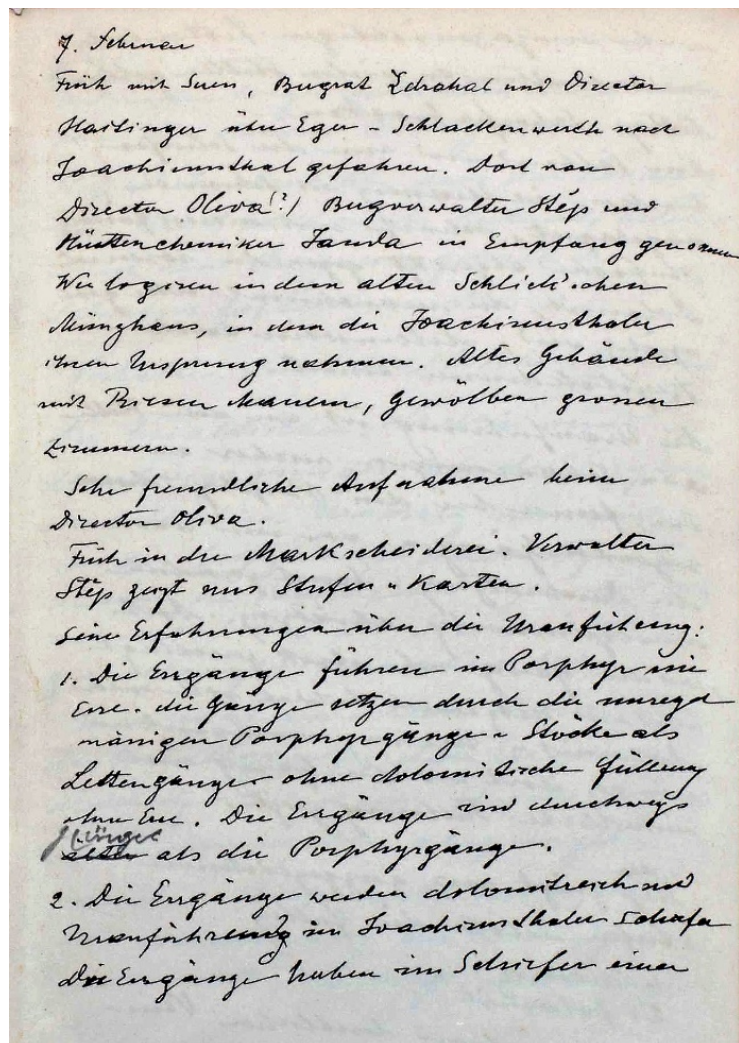 7. Februar
Früh mit Suess, Bergrat Zdrahal und Director
Haitinger über Eger – Schlackenwerth nach
Joachimsthal gefahren. Dort von
Director Oliva (?) Bergverwalter Štěp und
Hüttenchemiker Janda in Empfang genommen
Wir logiren in dem alten Schlick'schen
Münzhaus, in dem die Joachimsthaler
ihren Ursprung nahmen. Altes Gebäude
mit Riesen Mauern, Gewölben grossen
Zimmern.
Sehr freundliche Aufnahme beim
Director Oliva.
Früh in die Markscheiderei. Verwalter
Štěp zeigt uns Stufen u Karten.
Seine Erfahrungen über die Uranführung:
1. Die Erzgänge führen im Porphyr nie
Erze. die Gänge setzen durch die unregel
mässigen Porphyrgänge u Stöcke als
Lettengänge ohne dolomitische Füllung
ohne Erze. Die Erzgänge sind durchwegs
jünger
älter als die Porphyrgänge.
2. Die Erzgänge werden dolomitreich und
Uranführend im Joachimsthaler Schiefer
Die Erzgänge haben im Schiefer einen